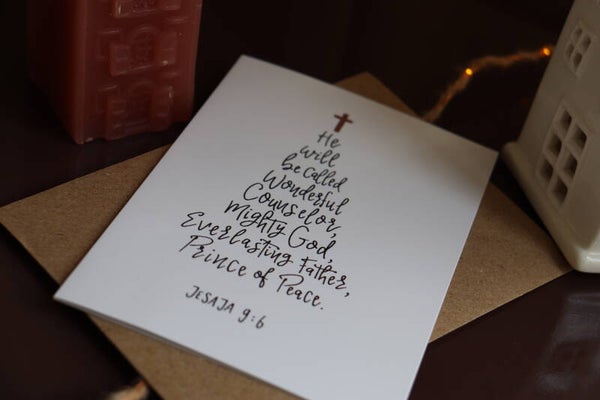 He
will
be called
Wonderful
Counselor,
Mighty God,
Everlasting Father,
Prince of Peace.
JESAJA 9:6